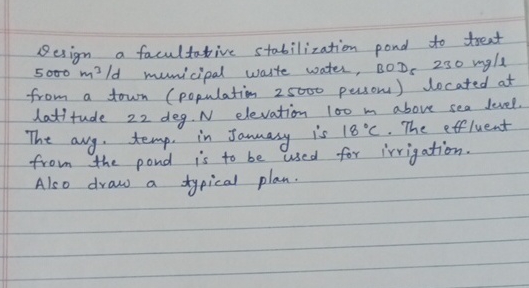 Design a facultative stabilization pond to treat
5000 m³/d municipal waste water, BOD5 230 mg/l
from a town (population 25000 persons) located at
latitude 22 deg. N elevation 100 m above sea level.
The avg. temp. in January is 18°C. The effluent
from the pond is to be used for irrigation.
Also draw a typical plan.